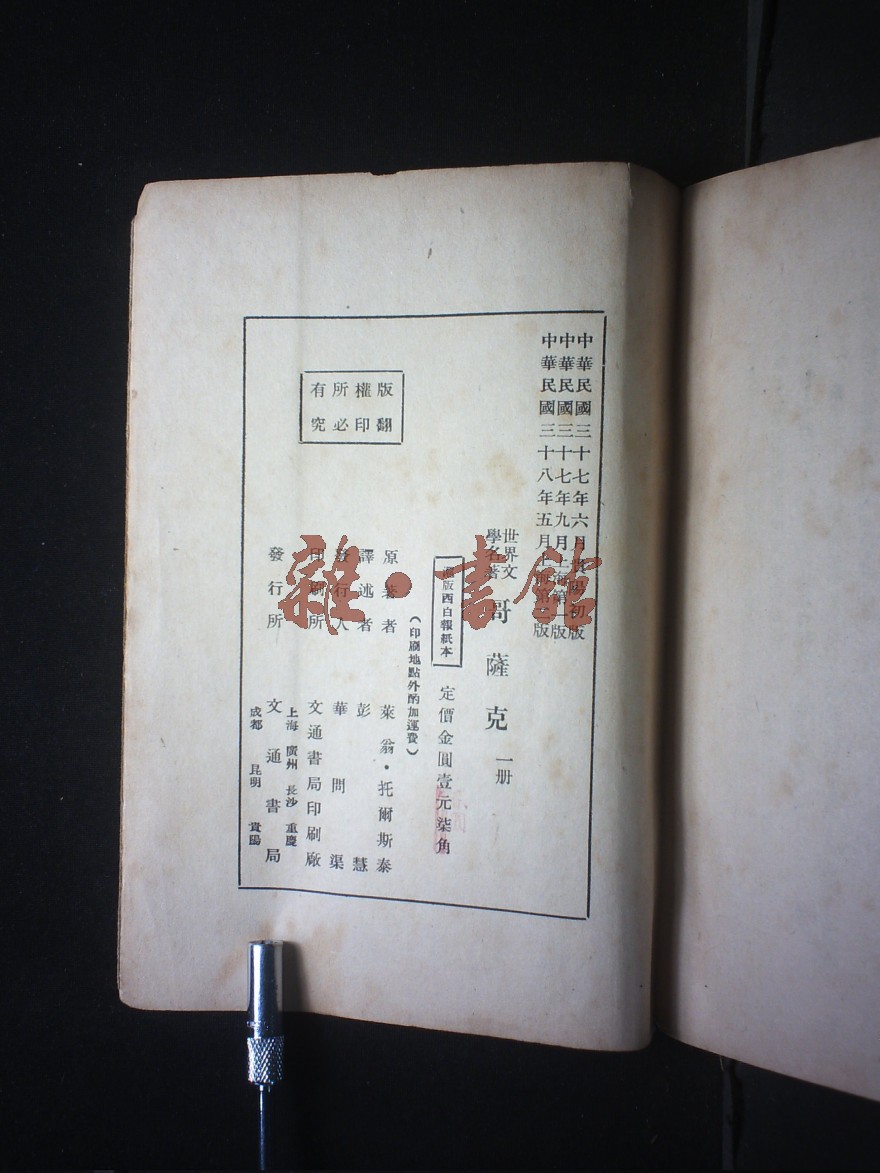 中華民國三十七年六月貴陽初版
中華民國三十七年九月上海第一版
中華民國三十八年五月上海第二版
世界文學名著
哥薩克 一册
版西白報紙本
定價金圓壹元柒角
(印刷地點外酌加運費)
原著者 萊翁・托爾斯泰
譯述者 彭慧
發行人 華問渠
印刷所 文通書局印刷廠
發行所 文通書局
上海 廣州 長沙 重慶
成都 昆明 貴陽
版權所有
翻印必究
雜・書館